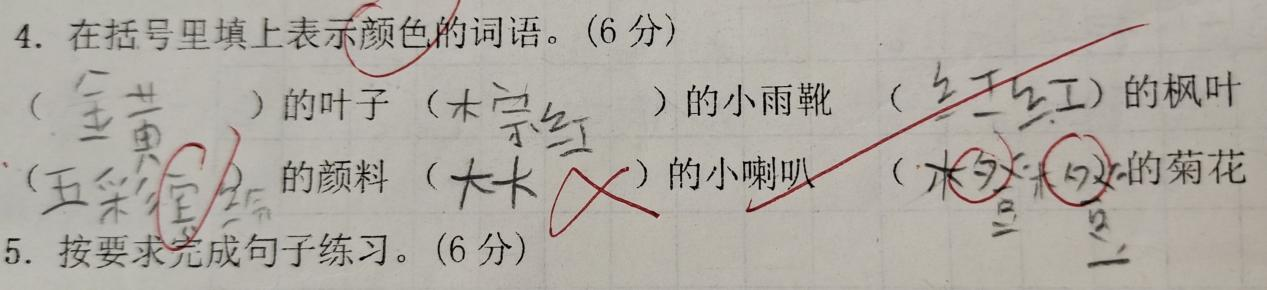 4. 在括号里填上表示颜色的词语。(6 分)
(金黄)的叶子 (棕红)的小雨靴 (红红)的枫叶
(五彩宾纷)的颜料 (大大)的小喇叭 (的菊花
5. 按要求完成句子练习。(6 分)